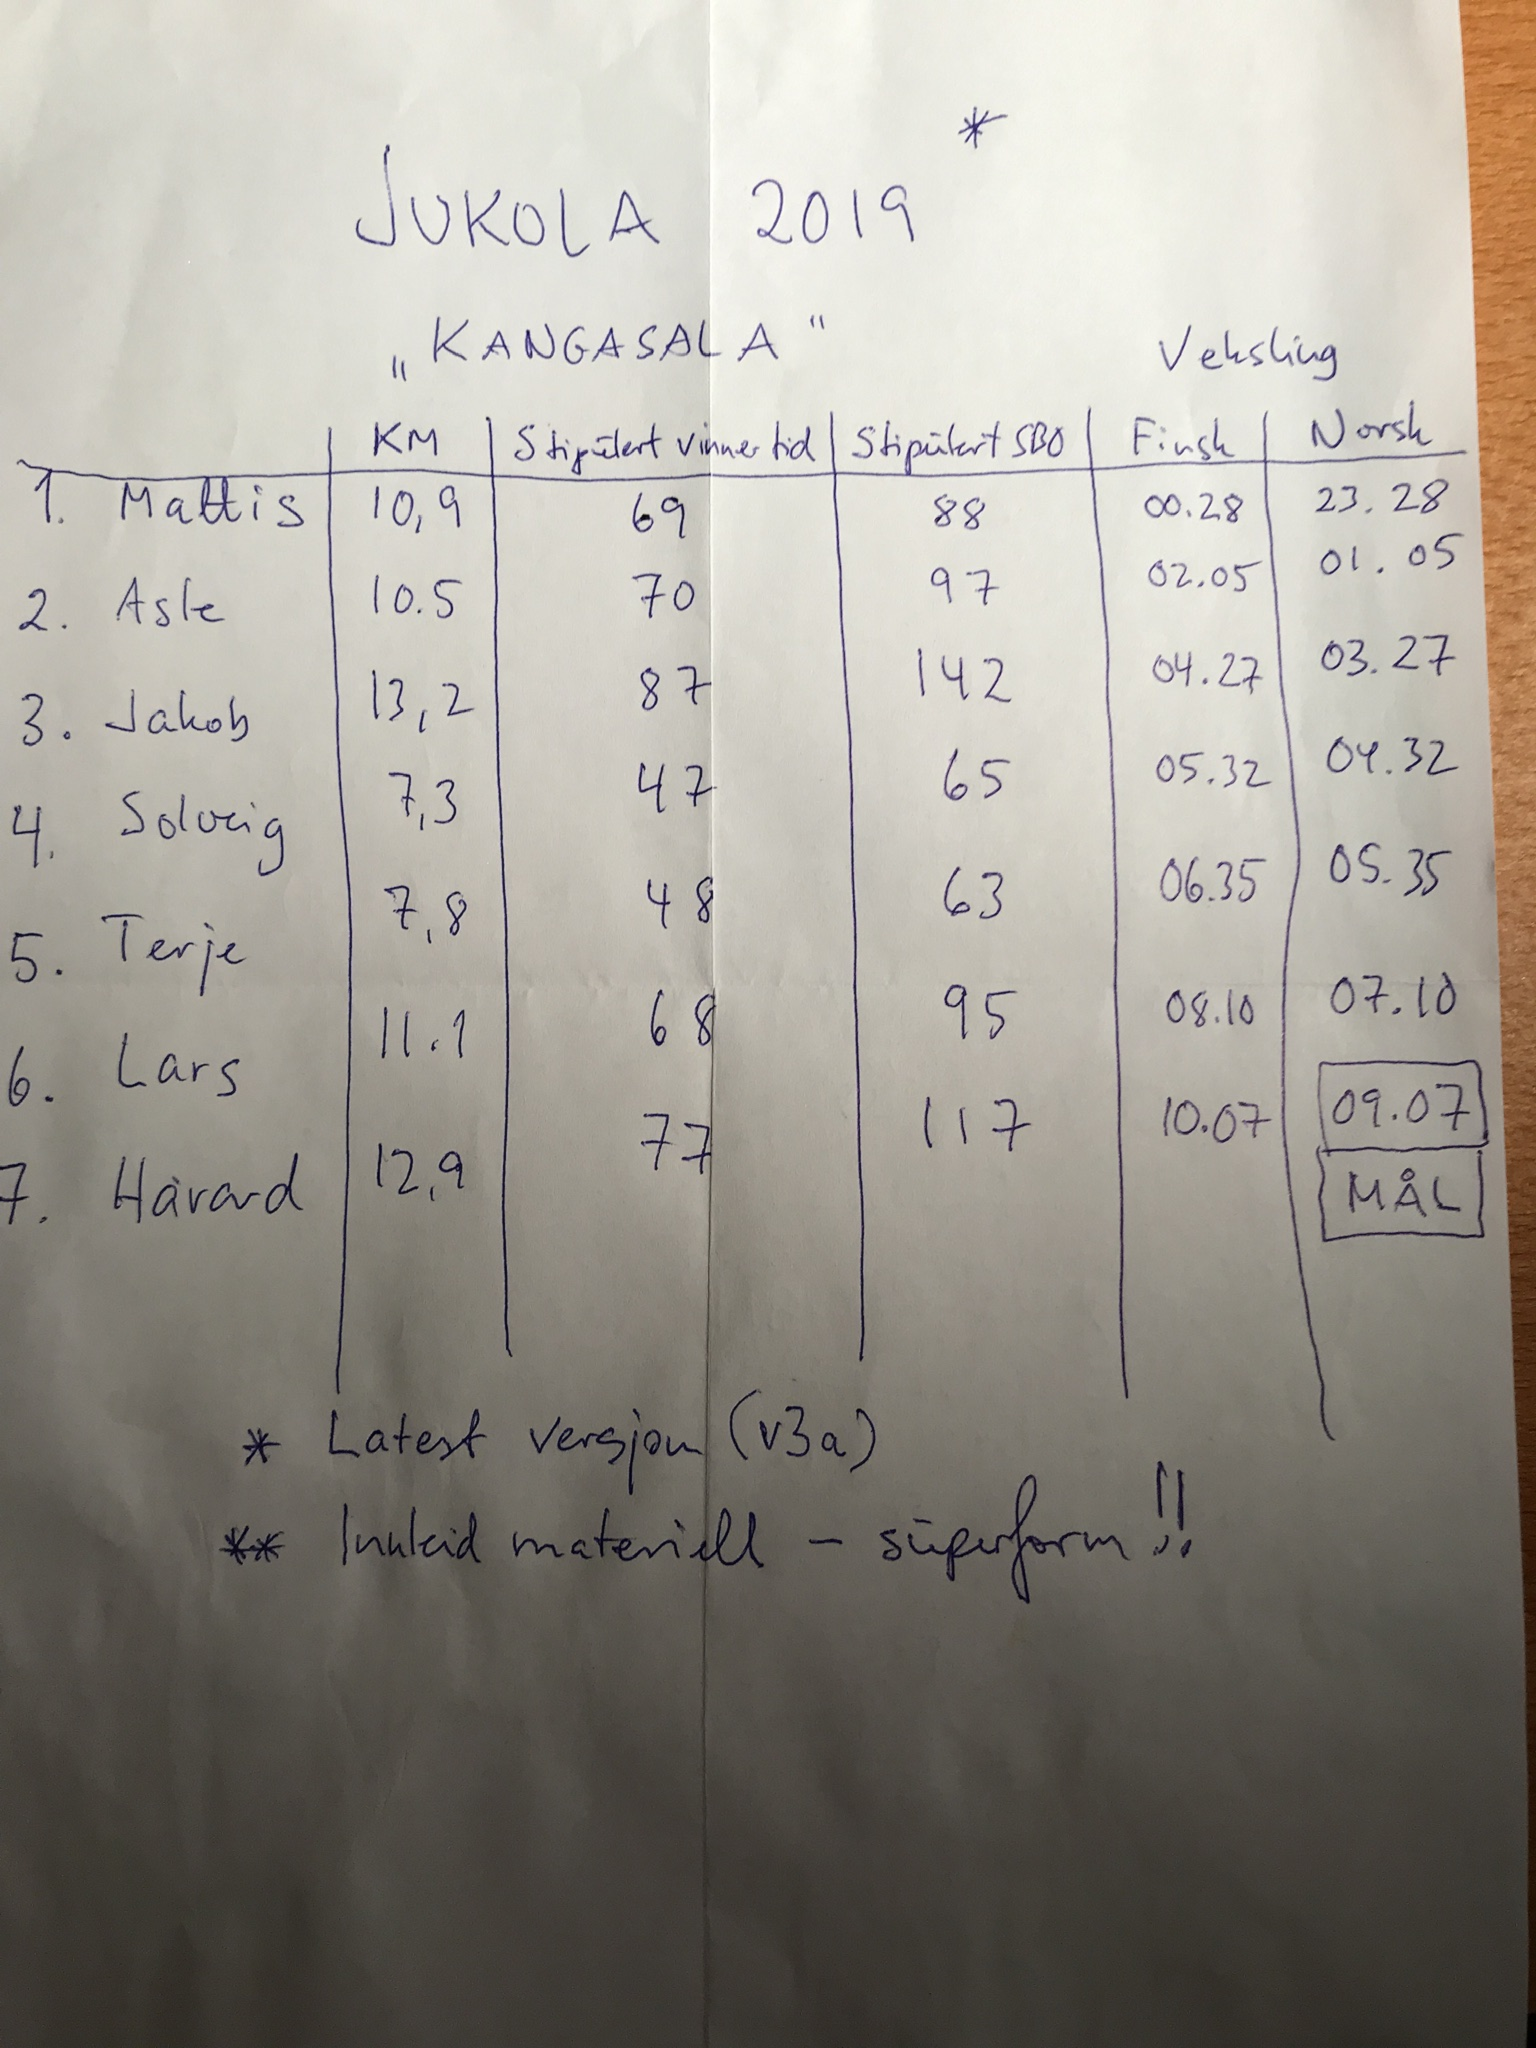 *
JUKOLA 2019
„KANGASALA"
Veksling
KM Stipulert vinnertid Stipulert SBO Finsk Norsk
1. Mattis 10,9 69 88 00.28 23.28
2. Asle 10.5 70 97 02.05 01.05
3. Jakob 13,2 87 142 04.27 03.27
4. Solveig 7,3 47 65 05.32 04.32
5. Terje 7,8 48 63 06.35 05.35
6. Lars 11.1 68 95 08.10 07.10
7. Håvard 12,9 77 117 10.07 09.07
MÅL
* Latest versjon (v3a)
** materiell – superform!!